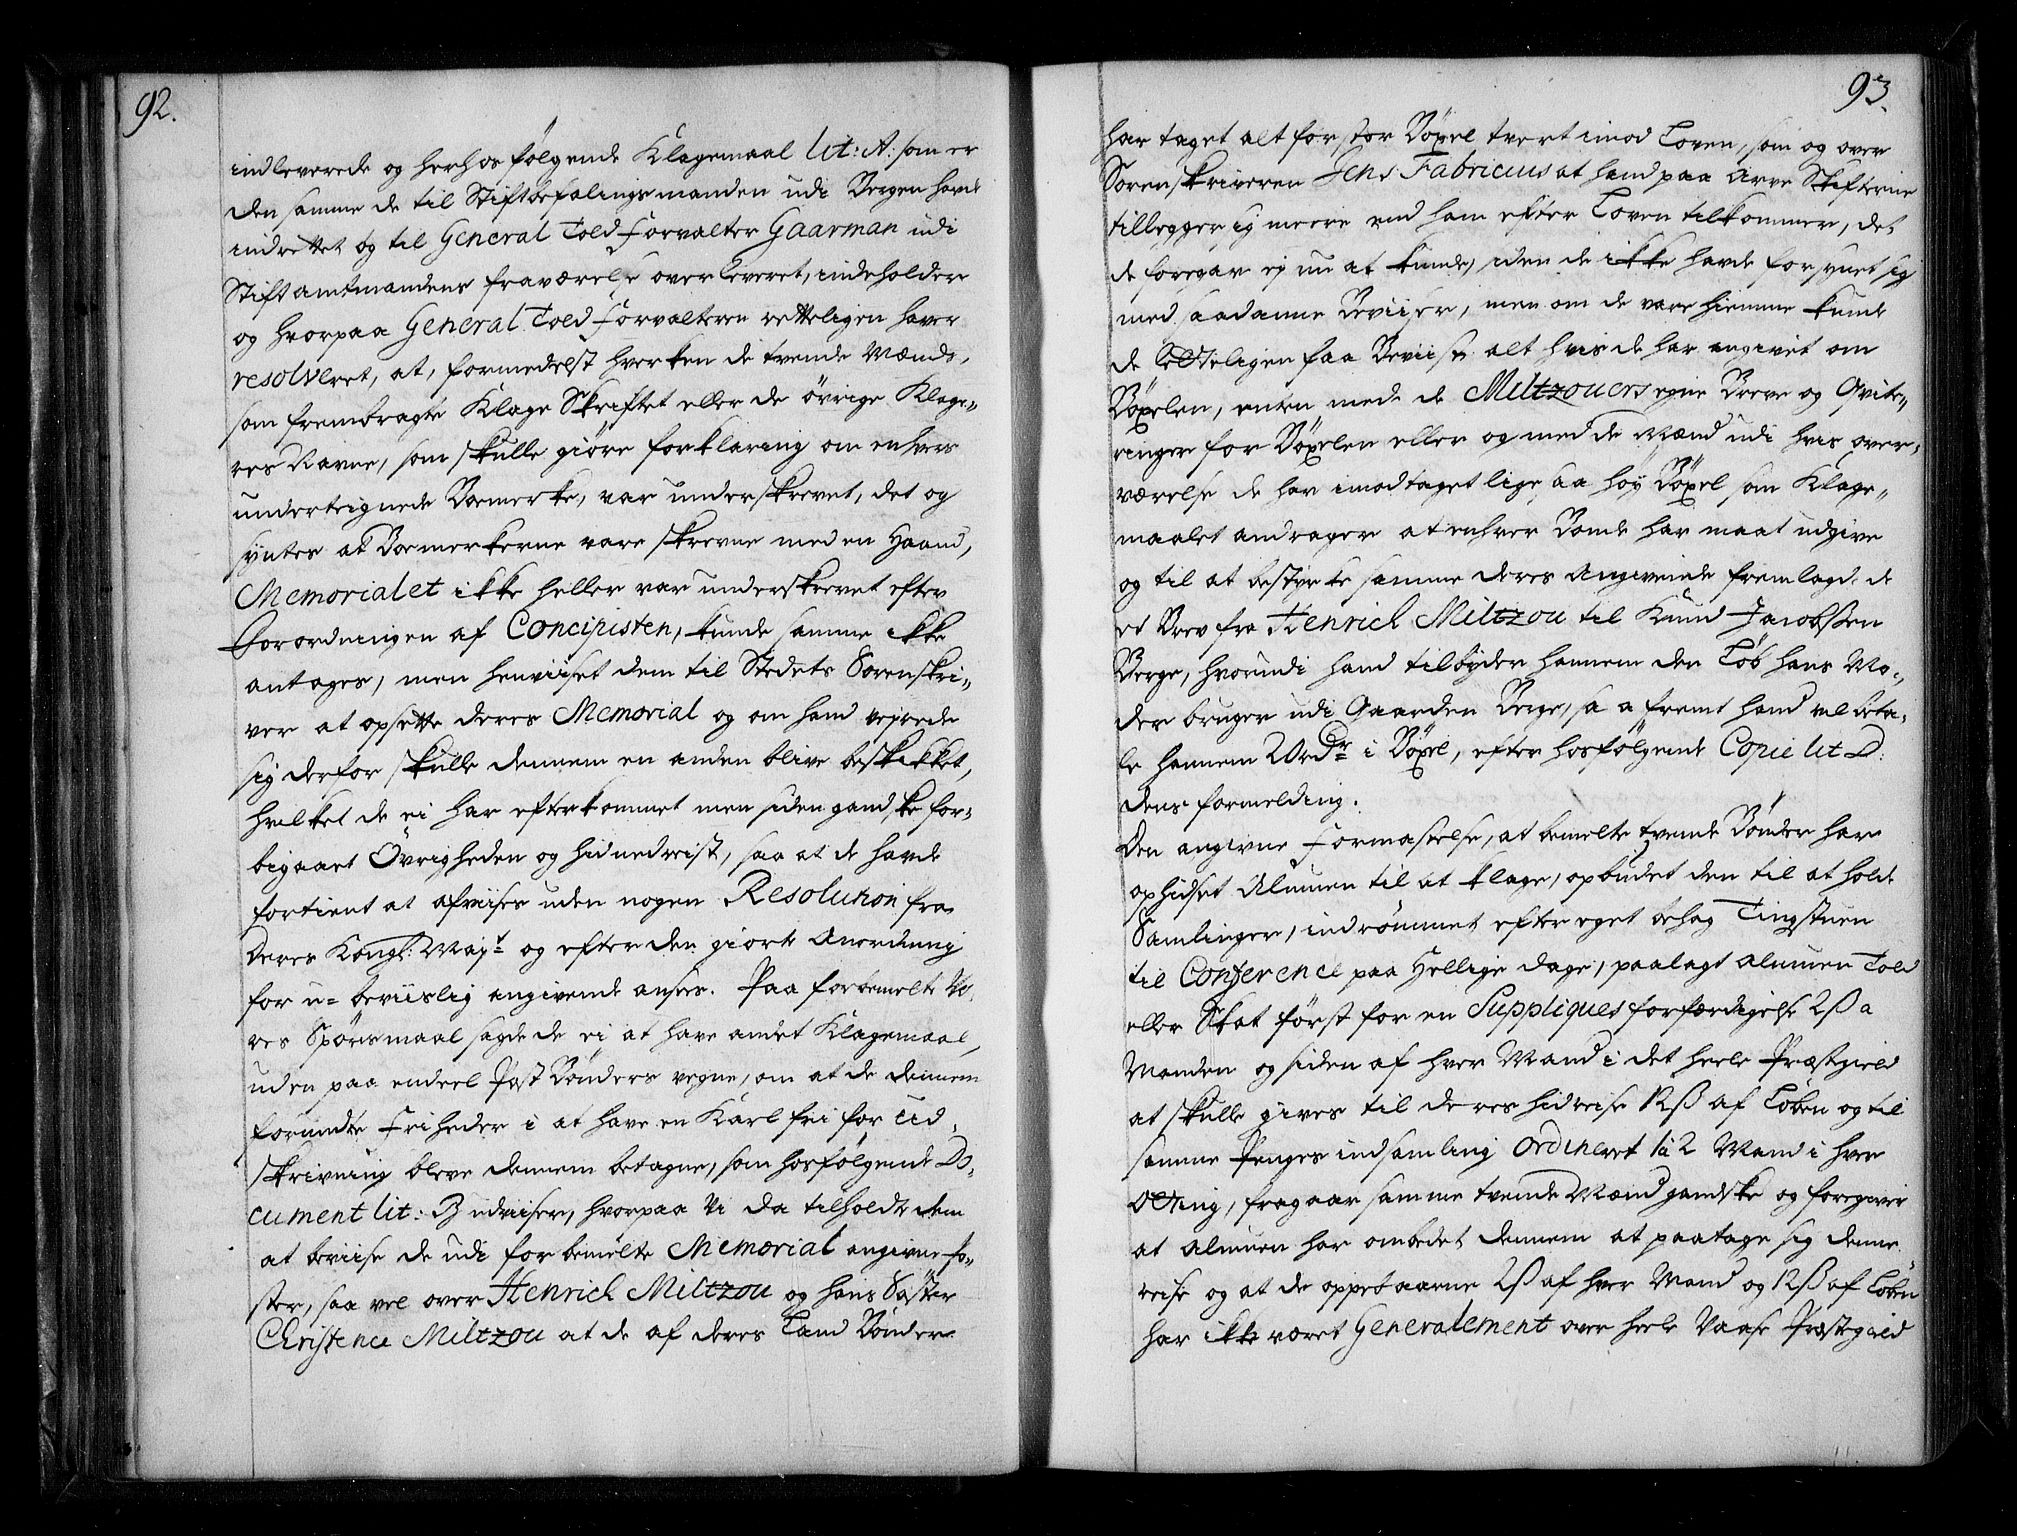 92.
indleverede og herhos følgende Klagemaal lit: A: som er
den samme de til Stiftbefalingsmanden udi Bergen havde
indrettet og til General Told Forvalter Gaarman udi
Stiftamtmandens fraværelse overleveret, indeholder
og hvorpaa General Told Forvalteren retteligen haver
resolveret, at, formedelst hverken de tvende Mænds,
som frembragte Klage Skriftet eller de öfrige Klage„
res Navne, som skulle giöre forklaring om enhvers
underteignede Boemerke, var underskrevet, det og
syntes at Boemerkerne vare skrevne med en Haand,
Memorialet ikke heller var underskrevet efter
Forordningen af Concipisten, kunde samme ikke
antages, men henviiset dem til Stedets Sorenskri„
ver at opsette deres Memorial og om hand vejrede
sig derfor skulle dennem en anden blive beskikket,
hvilket de ei har efterkommet men siden gandske for„
bigaaet Övrigheden og hidnedreist, saa at de havde
fortient at afviises uden nogen Resolution fra
Deres Kongl: Mayt og efter den giorte Anordning
for u= beviislig angivende ansees. Paa forbemelte Vo„
res Spörsmaal sagde de ei at have andet Klagemaal,
uden paa endeel Post Bönders vegne, om at de dennem
forundte Friheder i at have en Karl fri for Ud„
skrivning bleve dennem betagne, som hosfølgende Do„
cument lit: B udviiser, hvorpaa Vi da tilholdt dem
at beviise de udi forbemelte Memorial angivne Po„
ster, saa vel over Henrich Miltzou og hans Söster
Christence Miltzou at de af deres Land Bönder
93.
har taget alt for stor Böxel tvert imod Loven, som og over
Sorenskriveren Jens Fabricius at hand paa Arve Skifterne
tillegger sig meere end ham efter Loven tilkommer, det
de foregav ej nu at kunde, siden de ikke havde forsynet sig
med saadanne Beviiser, men om de vare hiemme kunde
de lætteligen faa Beviiser alt hvis de har angivet om
Böxelen, enten med de Miltzouers egne Breve og Qvite„
ringer for Böxelen eller og med de Mænd udi hvis over„
værelse de har imodtaget lige saa höy Böxel som Klage„
maalet andrager at enhver Bonde har maat udgive
og til at bestyrke samme deres Angivende fremlagde de
et Brev fra Henrich Miltzou til Knud Jacobsen
Berge, hvorudi hand tilbyder hannem den Löb hans Mo„
der bruger udi Gaarden Berge, saa fremt hand vil beta„
le hannem 20 rdr i Böxel, efter hosfölgende Copie lit D:
dens formelding.
Den angivne Formastelse, at bemelte tvende Bönder har
ophidset Almuen til at klage, opbudet den til at holde
Samlinger, indrömmet efter eget behag Tingstuen
til Conference paa Hellige dage, paalagt Almuen Told
eller Skat först for en Suppliques forfærdigelse 2ß a
Manden og siden af hver Mand i det heele Præstgield
at skulle gives til deres hidreise 12ß af Löben og til
samme Penges indsamling ordineret 1 à 2 Mand i hver
Otting, fragaar samme tvende Mænd gandske og foregiver
at Almuen har ombedet dennem at paatage sig denne
reise og at de oppebaarne 2ß af hver Mand og 12ß af Löben
har ikke været Generalement over heele Vaase Præstegield